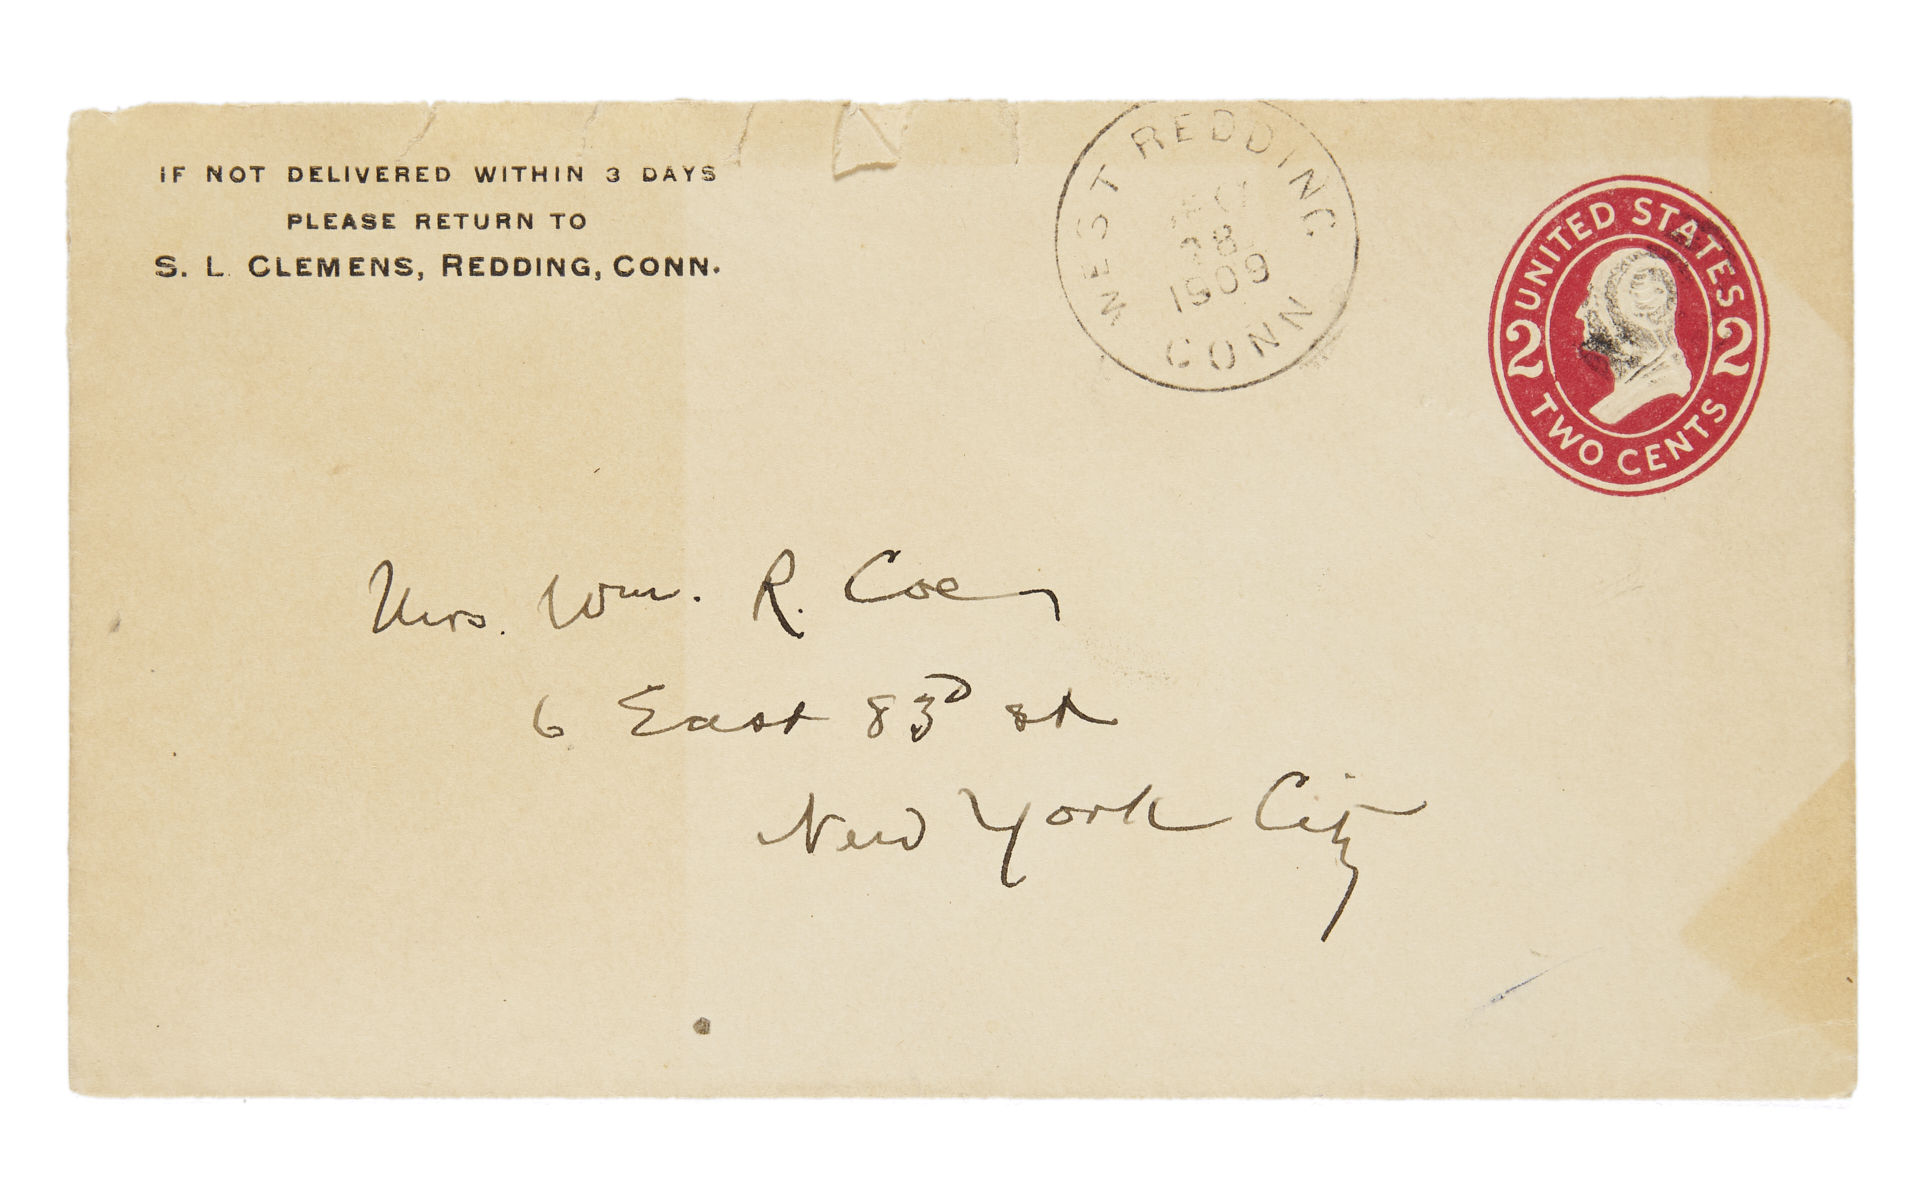 IF NOT DELIVERED WITHIN 3 DAYS
PLEASE RETURN TO
S. L. CLEMENS, REDDING, CONN.
WEST REDDING
28
1909
CONN
UNITED STATES
2 2
TWO CENTS
Mrs. Wm. R. Coe,
6 East 83D st
New York City